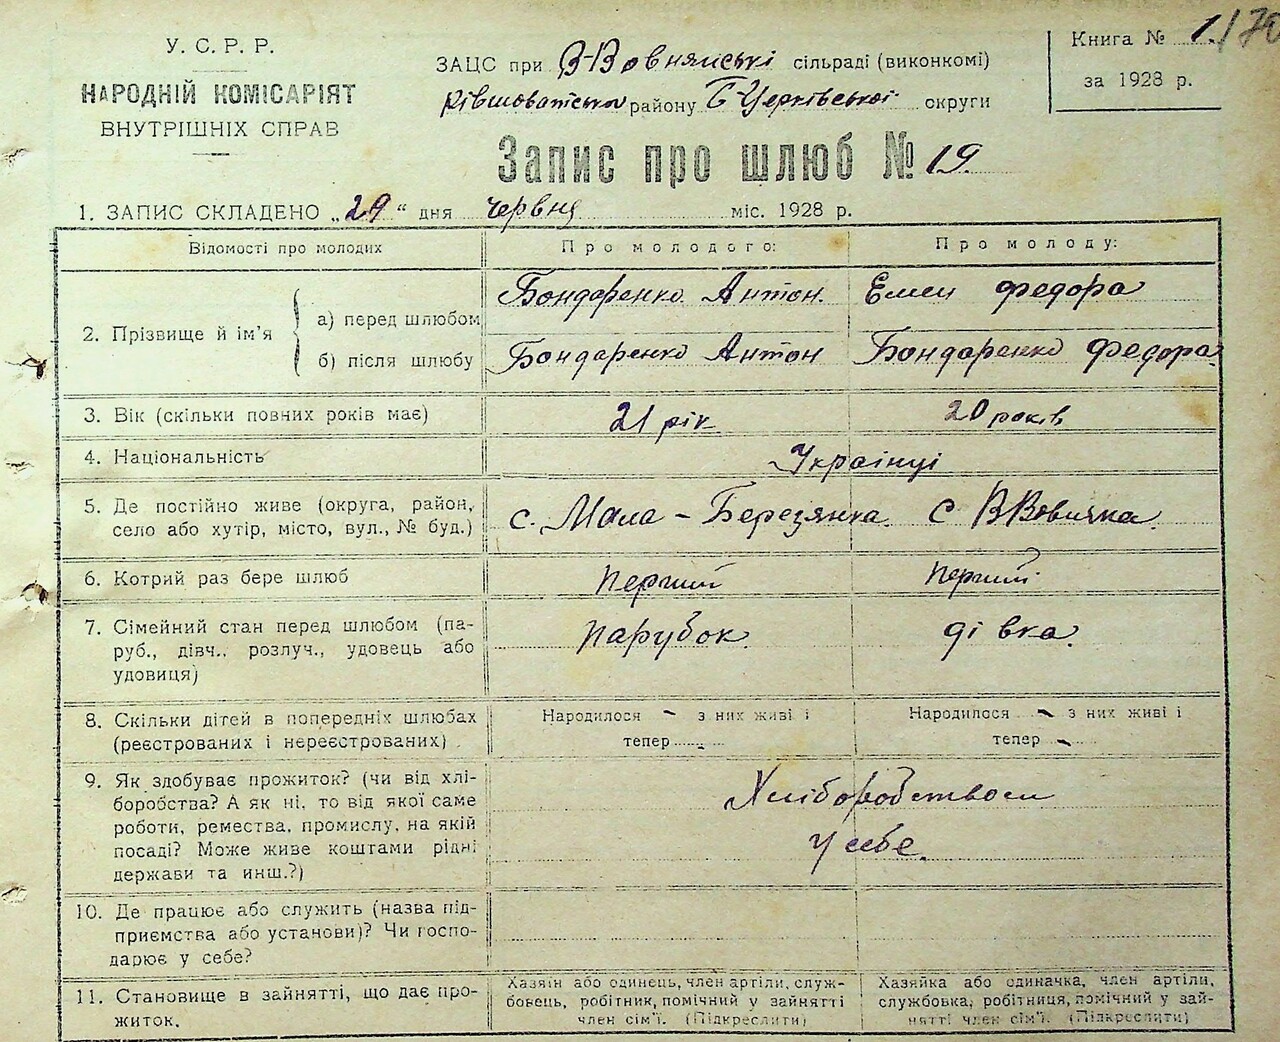 У. С. Р. Р.
НАРОДНІЙ КОМІСАРІЯТ
ВНУТРІШНІХ СПРАВ
ЗАЦС при В-Вовнянські сільраді (виконкомі)
району Б Церківської округи
Книга № 1/70
за 1928 р.
Запис про шлюб № 19
1. ЗАПИС СКЛАДЕНО „29“ дня червня міс. 1928 р.
Відомості про молодих
Про молодого:
Про молоду:
2. Прізвище й ім'я
а) перед шлюбом
Бондаренко Антон.
Федора
б) після шлюбу
Бондаренко Антон
Бондаренко Федора
3. Вік (скільки повних років має)
21 рік
20 років
4. Національність
Українці
5. Де постійно живе (округа, район,
село або хутір, місто, вул., № буд.)
с. Мала - Березянка.
с ВВовнянка.
6. Котрий раз бере шлюб
перший
перший
7. Сімейний стан перед шлюбом (па-
руб., дівч., розлуч., удовець або
удовиця)
парубок.
дівка.
8. Скільки дітей в попередніх шлюбах
(реєстрованих і нереєстрованих)
Народилося - з них живі і
тепер -
Народилося - з них живі і
тепер -
9. Як здобуває прожиток? (чи від хлі-
боробства? А як ні, то від якої саме
роботи, ремества, промислу, на якій
посаді? Може живе коштами рідні
держави та инш.?)
Хліборобством
у себе.
10. Де працює або служить (назва під-
приємства або установи)? Чи госпо-
дарює у себе?
11. Становище в зайнятті, що дає про-
житок.
Хазяїн або одинець, член артілі, служ-
бовець, робітник, помічний у зайнятті
член сім'ї. (Підкреслити)
Хазяйка або одиначка, член артіли,
службовка, робітниця, помічний у зай-
нятті член сім'ї. (Підкреслити)